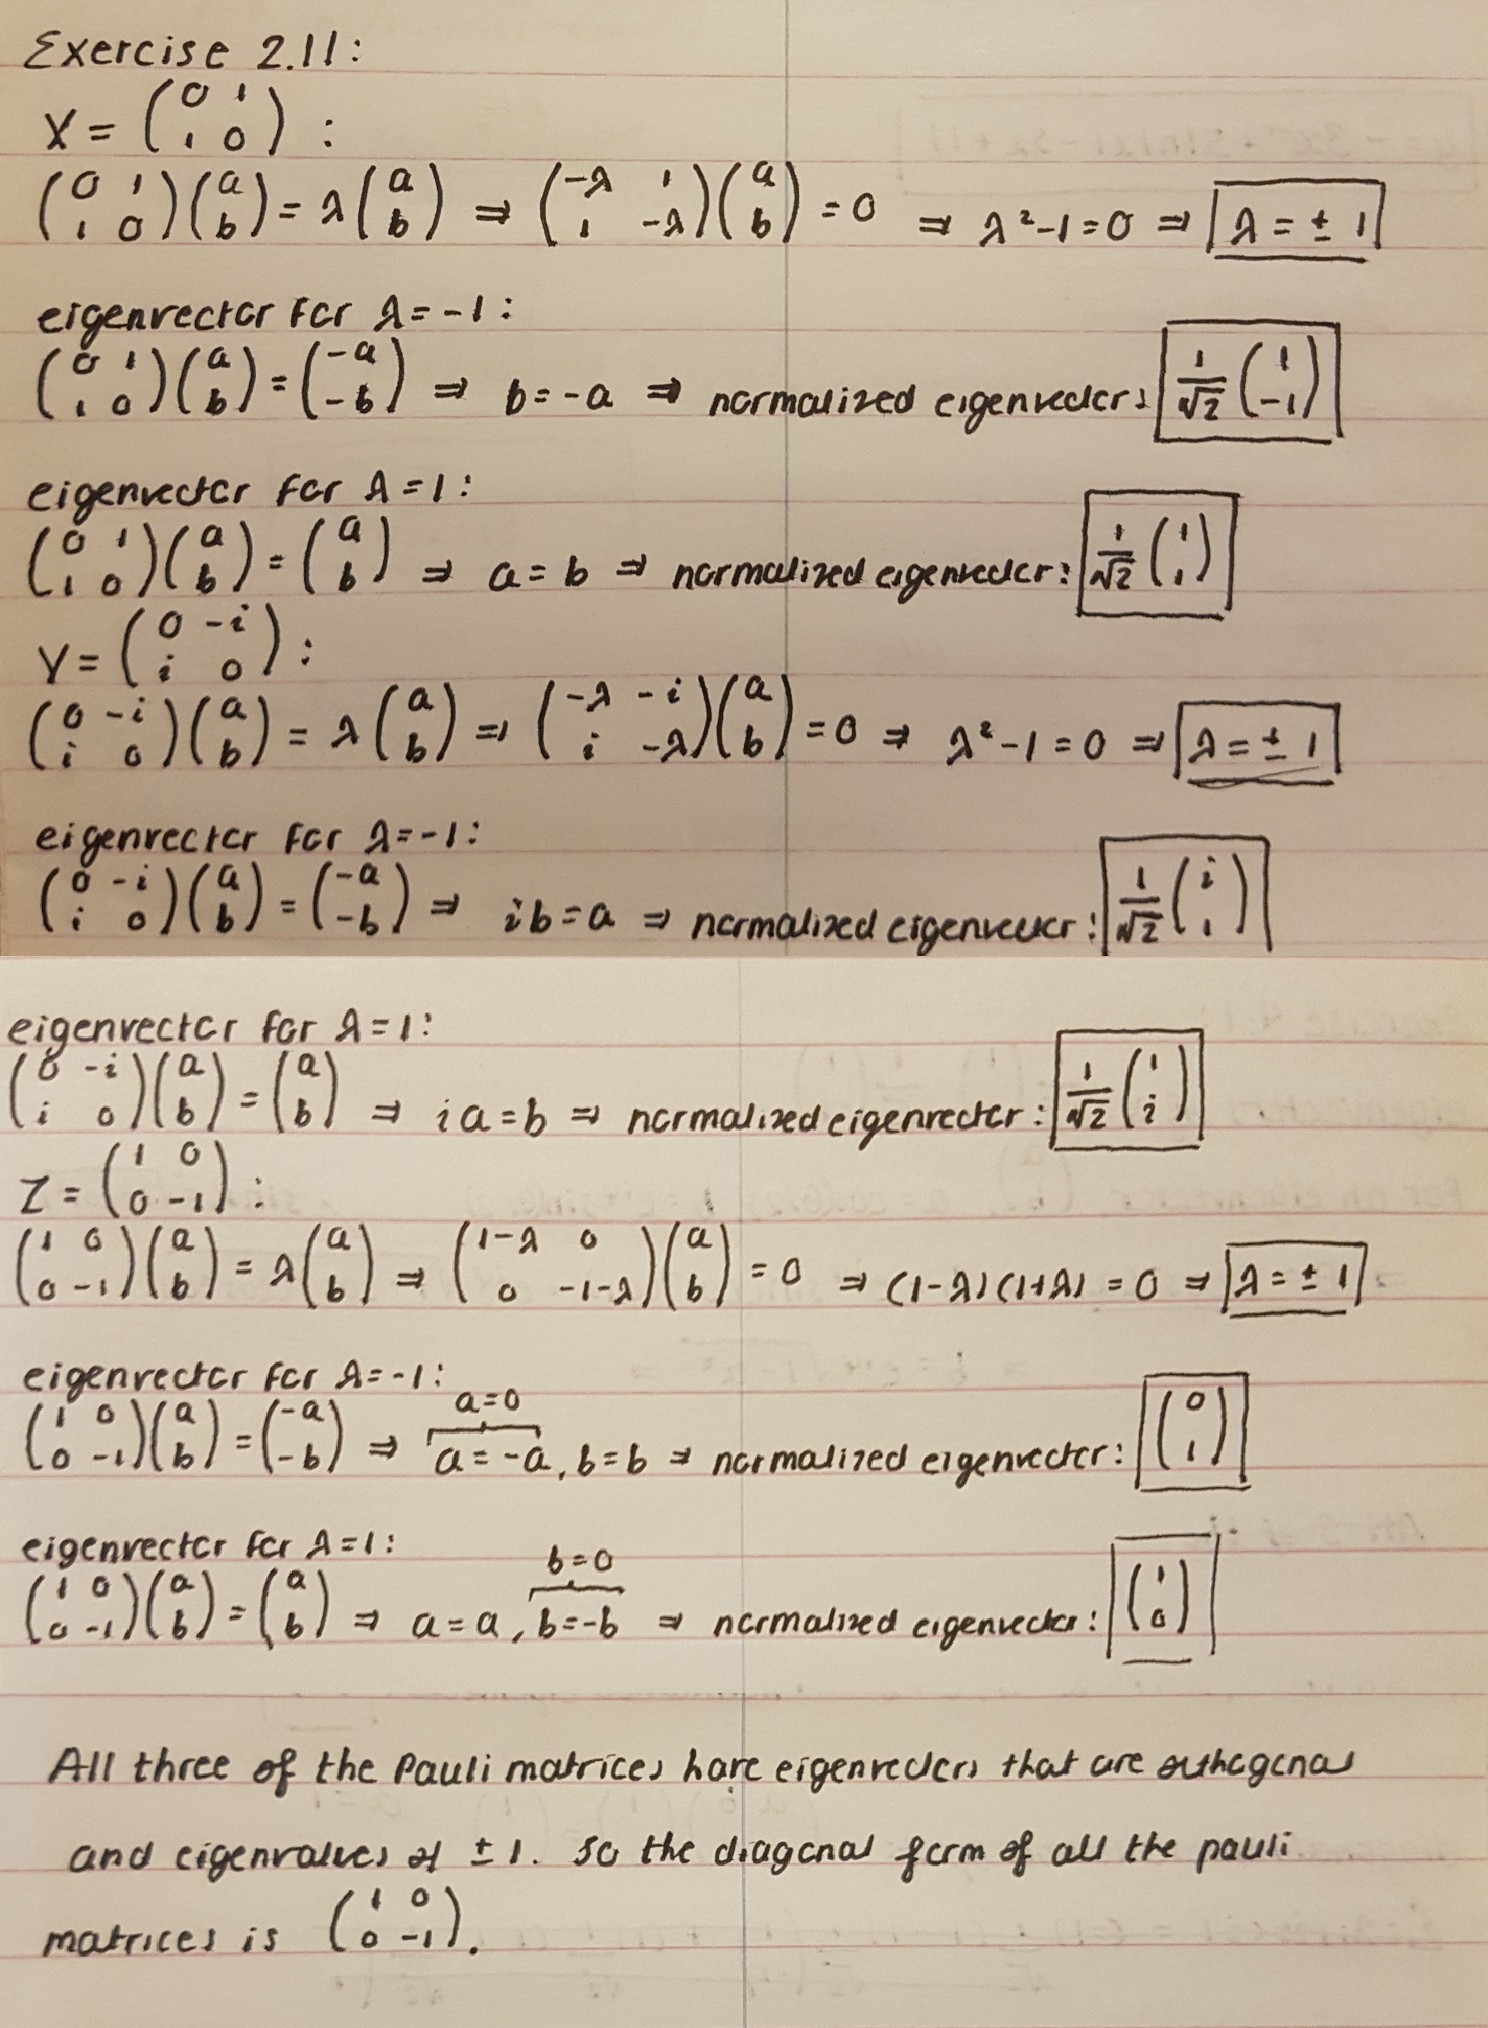 Exercise 2.11:
X = (0 1; 1 0) :
(0 1; 1 0)(a; b) = λ(a; b) ⇒ (-λ 1; 1 -λ)(a; b) = 0 ⇒ λ²-1=0 ⇒ λ = ± 1
eigenvector for λ = -1 :
(0 1; 1 0)(a; b) = (-a; -b) ⇒ b = -a ⇒ normalized eigenvector: 1/√2 (1; -1)
eigenvector for λ = 1 :
(0 1; 1 0)(a; b) = (a; b) ⇒ a = b ⇒ normalized eigenvector: 1/√2 (1; 1)
Y = (0 -i; i 0) :
(0 -i; i 0)(a; b) = λ(a; b) ⇒ (-λ -i; i -λ)(a; b) = 0 ⇒ λ²-1 = 0 ⇒ λ = ± 1
eigenvector for λ = -1 :
(0 -i; i 0)(a; b) = (-a; -b) ⇒ ib = a ⇒ normalized eigenvector: 1/√2 (i; 1)
eigenvector for λ = 1 :
(0 -i; i 0)(a; b) = (a; b) ⇒ ia = b ⇒ normalized eigenvector: 1/√2 (1; i)
Z = (1 0; 0 -1) :
(1 0; 0 -1)(a; b) = λ(a; b) ⇒ (1-λ 0; 0 -1-λ)(a; b) = 0 ⇒ (1-λ)(1+λ) = 0 ⇒ λ = ± 1
eigenvector for λ = -1 :
a=0
(1 0; 0 -1)(a; b) = (-a; -b) ⇒ a = -a, b = b ⇒ normalized eigenvector: (0; 1)
eigenvector for λ = 1 :
b=0
(1 0; 0 -1)(a; b) = (a; b) ⇒ a = a, b = -b ⇒ normalized eigenvector: (1; 0)
All three of the Pauli matrices have eigenvectors that are orthogonal
and eigenvalues of ± 1. So the diagonal form of all the pauli
matrices is (1 0; 0 -1).